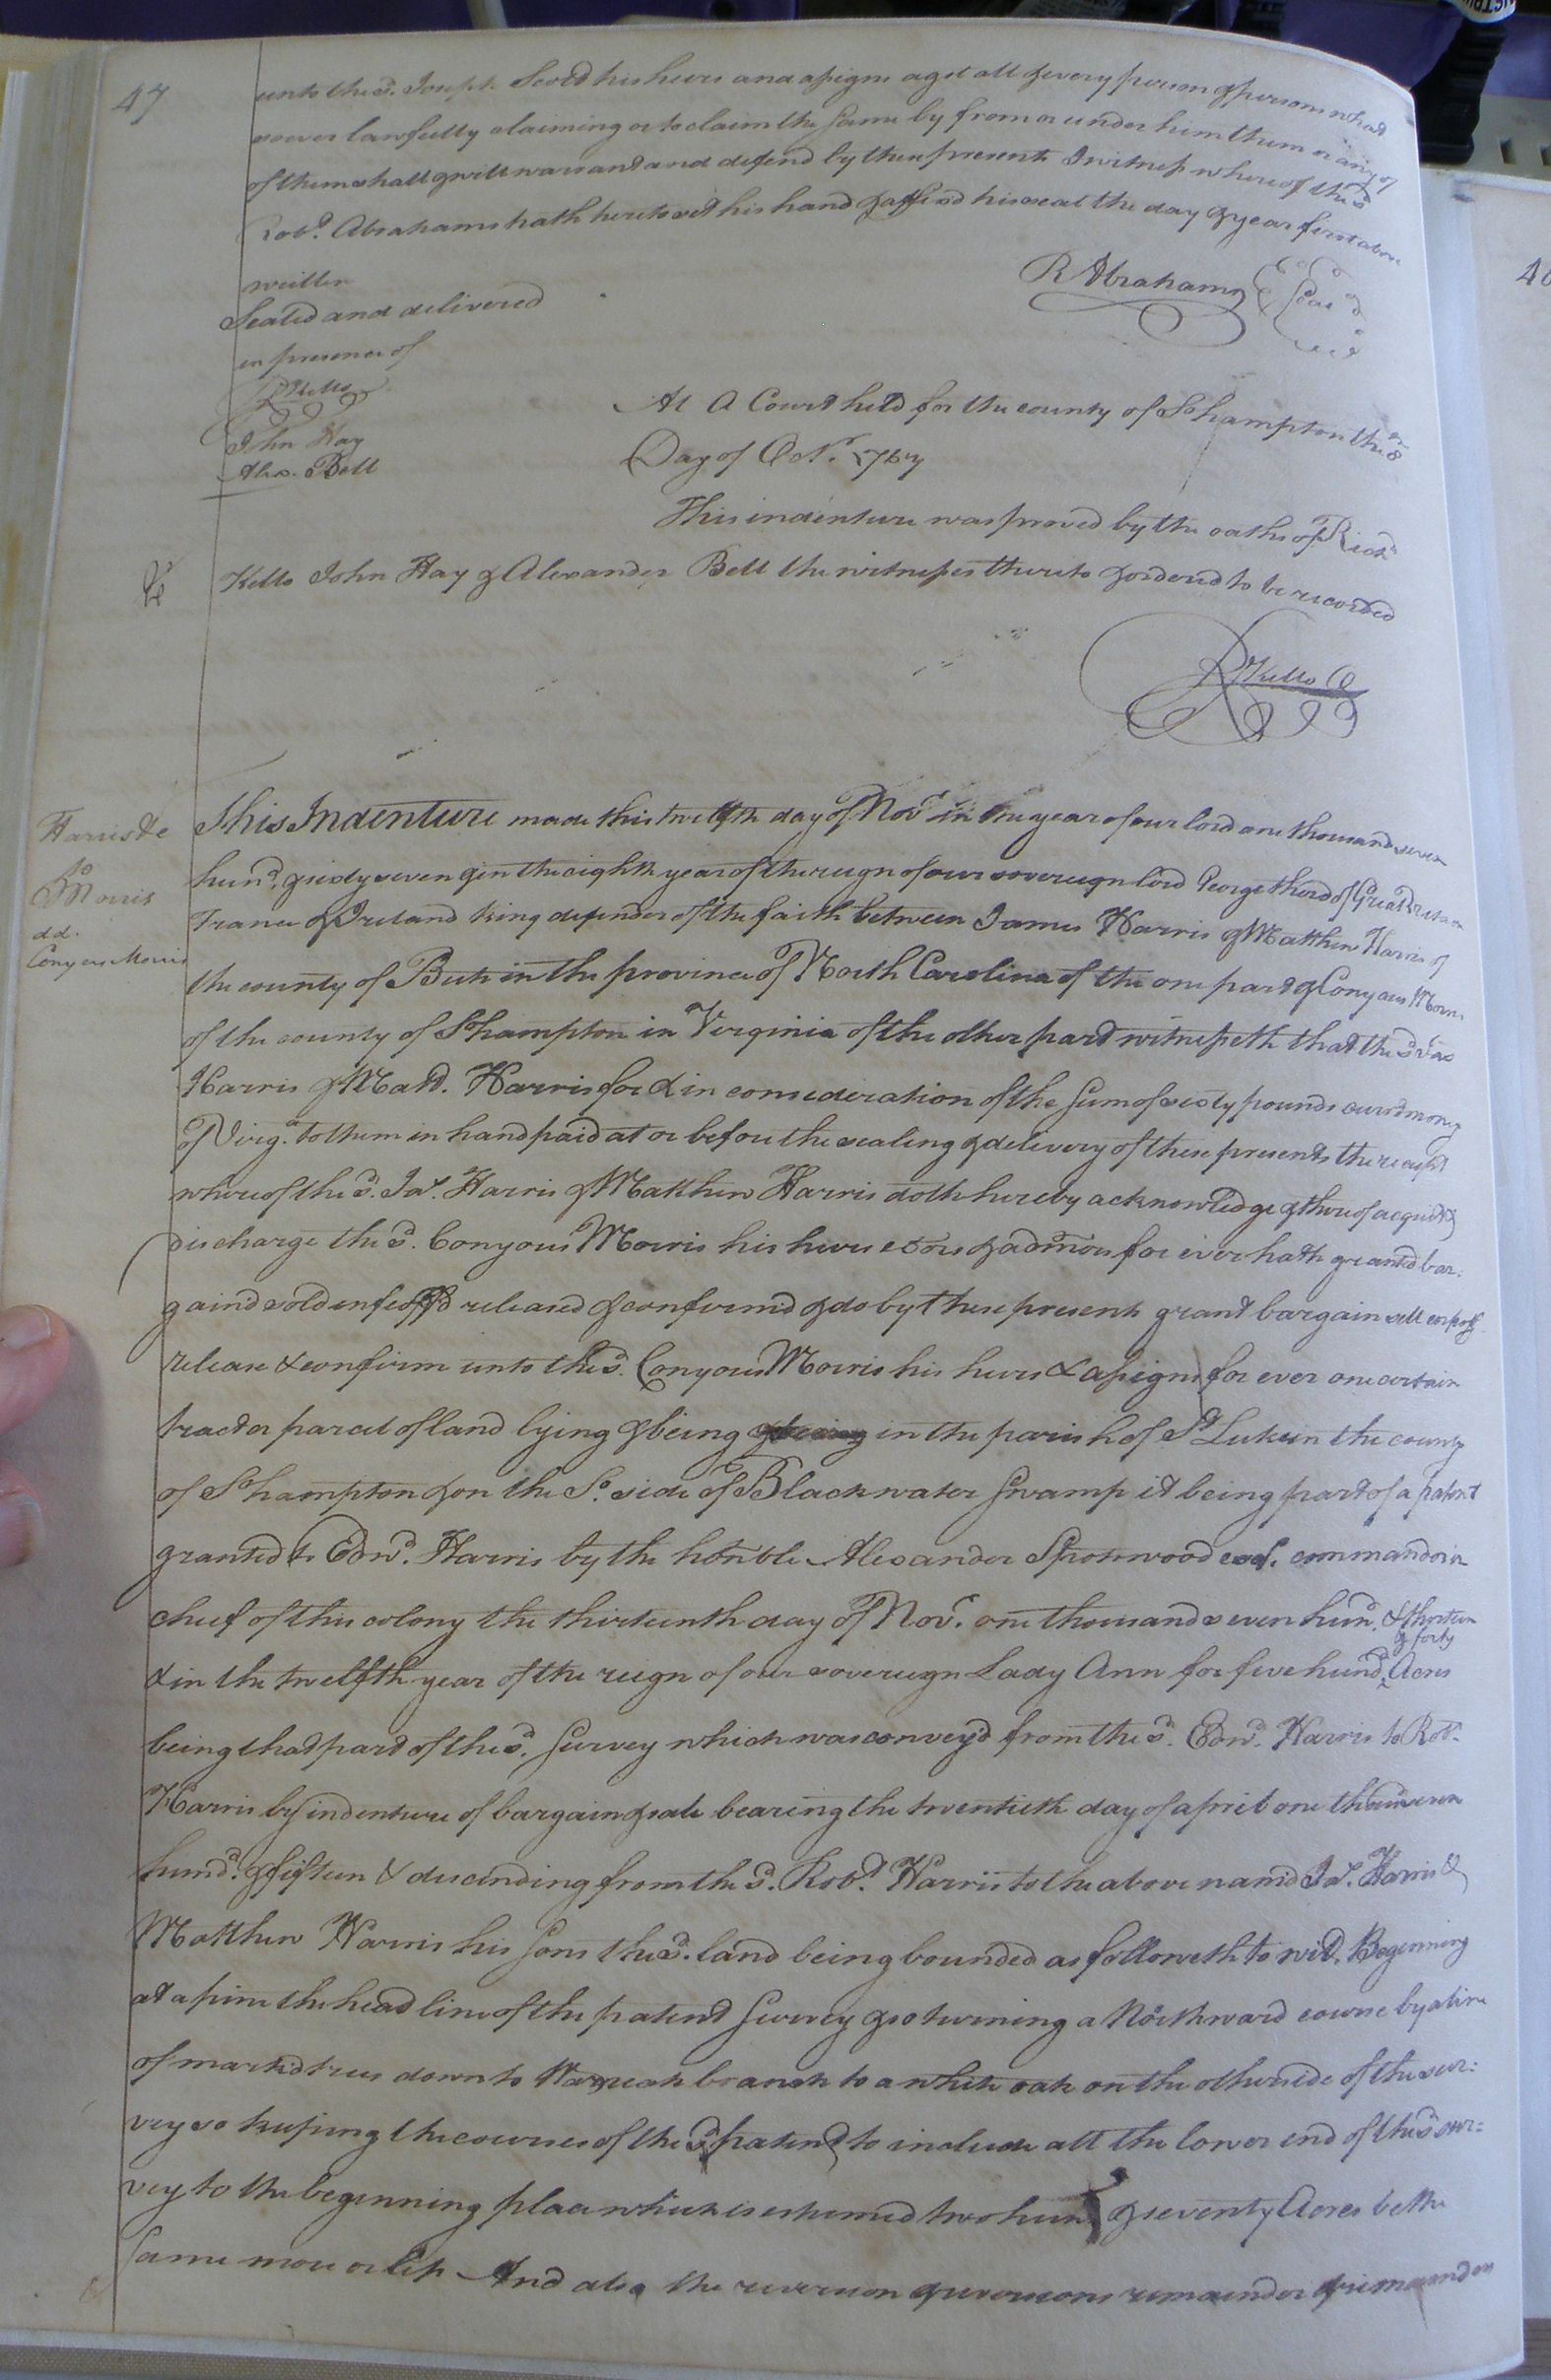 47
unto the sd. Joseph Scott his heirs and assigns agst all & every person & persons what
soever lawfully claiming or to claim the same by from or under him them or any of
of them shall & will warrant and defend by these presents In witness whereof the sd
Robt. Abrahams hath hereto set his hand & affixed his seal the day & year first above
written
R Abrahams Seal
Sealed and delivered
in presence of
R Kello
John Hay
Alex. Bell
At A Court held for the county of So hampton the 8
Day of Octr. 1767
This indenture was proved by the oaths of Richd
Kello John Hay & Alexander Bell the witnesses thereto & ordered to be recorded
R Kello C
Harris &c
to
Morris
dd.
Conyers Morris
This Indenture made this twelfth day of Novr in the year of our lord one thousand seven
hund. & sixty seven & in the eighth year of the reign of our sovereign lord George third of Great Britain
France & Ireland king defender of the faith between James Harris & Matthew Harris of
the county of Bute in the province of North Carolina of the one part & Conyous Morris
of the county of So hampton in Virginia of the other part witnesseth that the sd Jas
Harris & Matt. Harris for & in consideration of the sum of sixty pounds currt mony
of Virga. to them in hand paid at or before the sealing & delivery of these presents the receipt
whereof the sd. Jas. Harris & Matthew Harris doth hereby acknowledge & thereof acquit &
discharge the sd. Conyous Morris his heirs exors & admors for ever hath granted bar:
gaind sold enfeoffd released & confirmd & do by these presents grant bargain sell
release & confirm unto the sd. Conyous Morris his heirs & assigns for ever one certain
tract or parcel of land lying & being in the parish of St Luke in the county
of So hampton & on the So. side of Blackwater Swamp it being part of a patent
granted to Edwd. Harris by the honble Alexander Spotswood esd. commandor in
cheef of this colony the thirteenth day of Novr. one thousand seven hund. & thorteen
& in the twelfth year of the reign of our sovereign Lady Ann for five hund. & forty Acres
being that part of the sd. survey which was convey'd from the sd. Edwd. Harris to Robt.
Harris by indenture of bargain & sale bearing the twentieth day of april one thousd seven
hund. & fifteen & descending from the sd. Robt. Harris to the above namd Jas. Harris &
Matthew Harris his sons the sd. land being bounded as followeth to wit. Beginning
at a pine the head line of the patent survey & so turning a Northward course by a line
of markd trees down to branch to a white oak on the other side of the sur:
vey so keeping the courses of the sd patent to include all the lower end of the sd sur:
vey to the beginning place which is esteemed two hund & seventy Acres be the
same more or less And also the reversion & reversions remainder & remainders